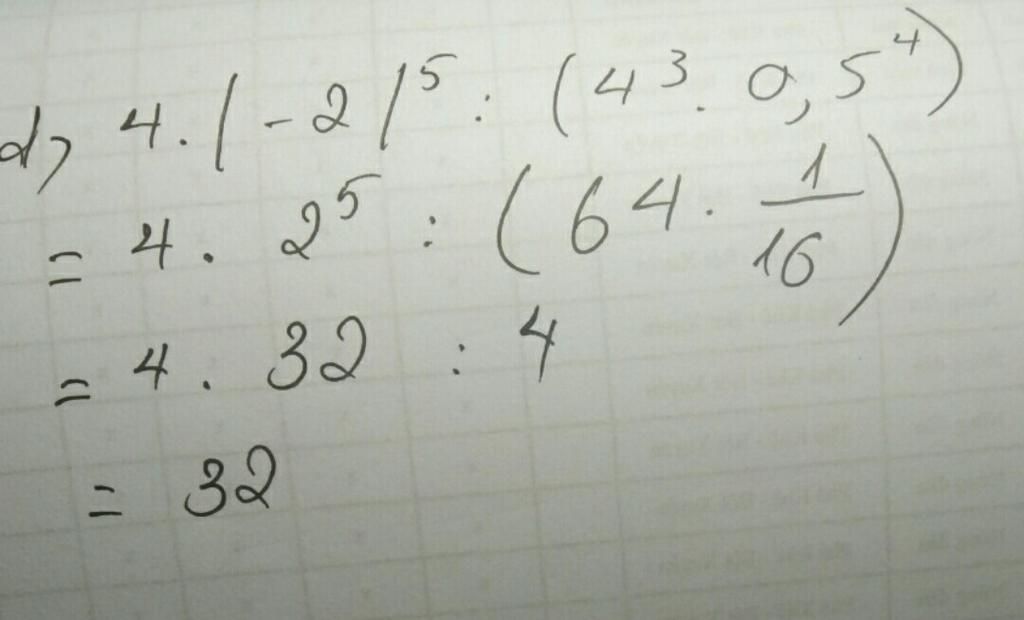 d) 4 . |-2|⁵ : (4³ . 0,5⁴)
= 4 . 2⁵ : (64 . 1/16)
= 4 . 32 : 4
= 32